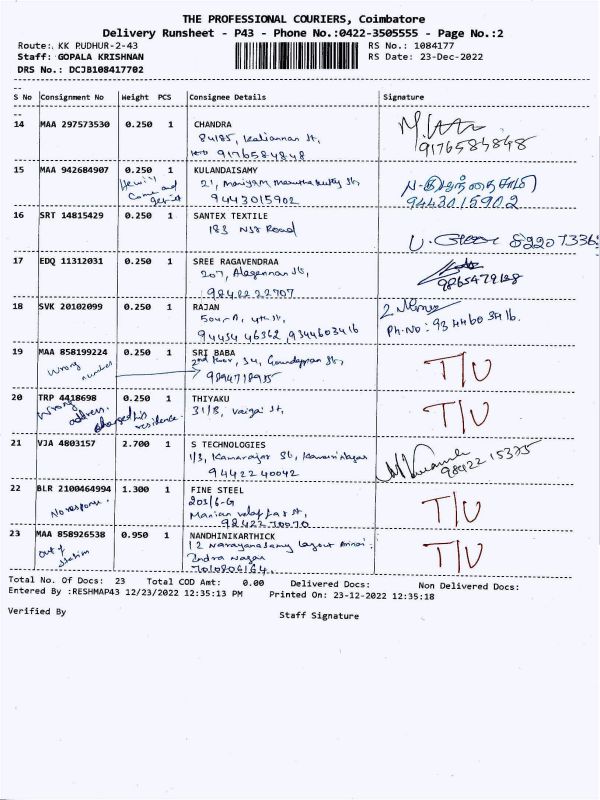 THE PROFESSIONAL COURIERS, Coimbatore
Delivery Runsheet - P43 - Phone No.:0422-3505555 - Page No.:2
Route: KK PUDHUR-2-43 RS No.: 1084177
Staff: GOPALA KRISHNAN RS Date: 23-Dec-2022
DRS No.: DCJB108417702
S No Consignment No Weight PCS Consignee Details Signature
14 MAA 297573530 0.250 1 CHANDRA
84/85, Kaliannan St,
9176584848 9176584848
15 MAA 942684907 0.250 1 KULANDAISAMY
Come and 21, St,
9443015902 9443015902
16 SRT 14815429 0.250 1 SANTEX TEXTILE
183 NSR Road
17 EDQ 11312031 0.250 1 SREE RAGAVENDRAA
207, Alagannan St,
98422 22707
18 SVK 20102099 0.250 1 RAJAN
4th St,
9344603416 Ph.No: 9344603416.
19 MAA 858199224 0.250 1 SRI BABA
wrong number 2nd floor, 34, Goundappan St, T/U
20 TRP 4418698 0.250 1 THIYAKU
wrong address, 31/8, Vaigai St, T/U
changed his residence
21 VJA 4803157 2.700 1 S TECHNOLOGIES
1/3, Kamarajar St,
9442240042 98422 15335
22 BLR 2100464994 1.300 1 FINE STEEL
No response. 203/6-G T/U
98422 70070
23 MAA 858926538 0.950 1 NANDHINIKARTHICK
out of station 12 Narayanasamy Layout Annai T/U
Indra Nagar
7010806164
Total No. Of Docs: 23 Total COD Amt: 0.00 Delivered Docs: Non Delivered Docs:
Entered By :RESHMAP43 12/23/2022 12:35:13 PM Printed On: 23-12-2022 12:35:18
Verified By Staff Signature